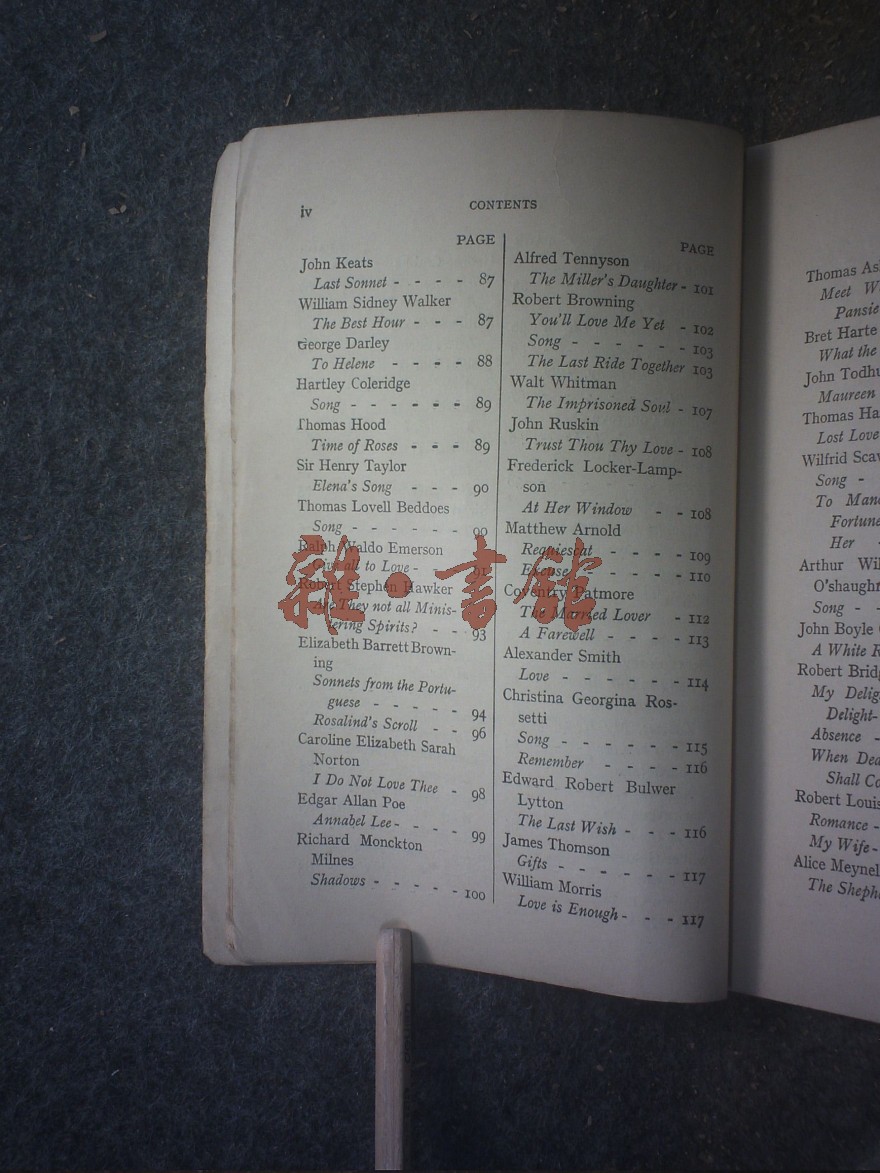 iv
CONTENTS
PAGE
John Keats
Last Sonnet - - - - 87
William Sidney Walker
The Best Hour - - - 87
George Darley
To Helene - - - - 88
Hartley Coleridge
Song - - - - - - 89
Thomas Hood
Time of Roses - - - 89
Sir Henry Taylor
Elena's Song - - - 90
Thomas Lovell Beddoes
Song - - - - - - 90
Ralph Waldo Emerson
Give all to Love - 91
Robert Stephen Hawker
Are They not all Minis-
tering Spirits? - - 93
Elizabeth Barrett Brown-
ing
Sonnets from the Portu-
guese - - - - - 94
Rosalind's Scroll - - 96
Caroline Elizabeth Sarah
Norton
I Do Not Love Thee - 98
Edgar Allan Poe
Annabel Lee - - - - 99
Richard Monckton
Milnes
Shadows - - - - - 100
PAGE
Alfred Tennyson
The Miller's Daughter - 101
Robert Browning
You'll Love Me Yet - 102
Song - - - - - - 103
The Last Ride Together 103
Walt Whitman
The Imprisoned Soul - 107
John Ruskin
Trust Thou Thy Love - 108
Frederick Locker-Lamp-
son
At Her Window - - 108
Matthew Arnold
Requiescat - - - - 109
Excuse - - - - 110
Coventry Patmore
The Married Lover - 112
A Farewell - - - - 113
Alexander Smith
Love - - - - - - 114
Christina Georgina Ros-
setti
Song - - - - - - 115
Remember - - - - 116
Edward Robert Bulwer
Lytton
The Last Wish - - - 116
James Thomson
Gifts - - - - - - 117
William Morris
Love is Enough - - - 117
Thomas
Meet
Pansie
Bret Harte
What the
John
Maureen
Thomas
Lost Love
Wilfrid
Song -
To
Fortune
Her -
Arthur
Song - -
John Boyle
A White
Robert
My
Delight-
Absence -
When
Shall
Robert
Romance -
My Wife -
Alice
The
雜·書館